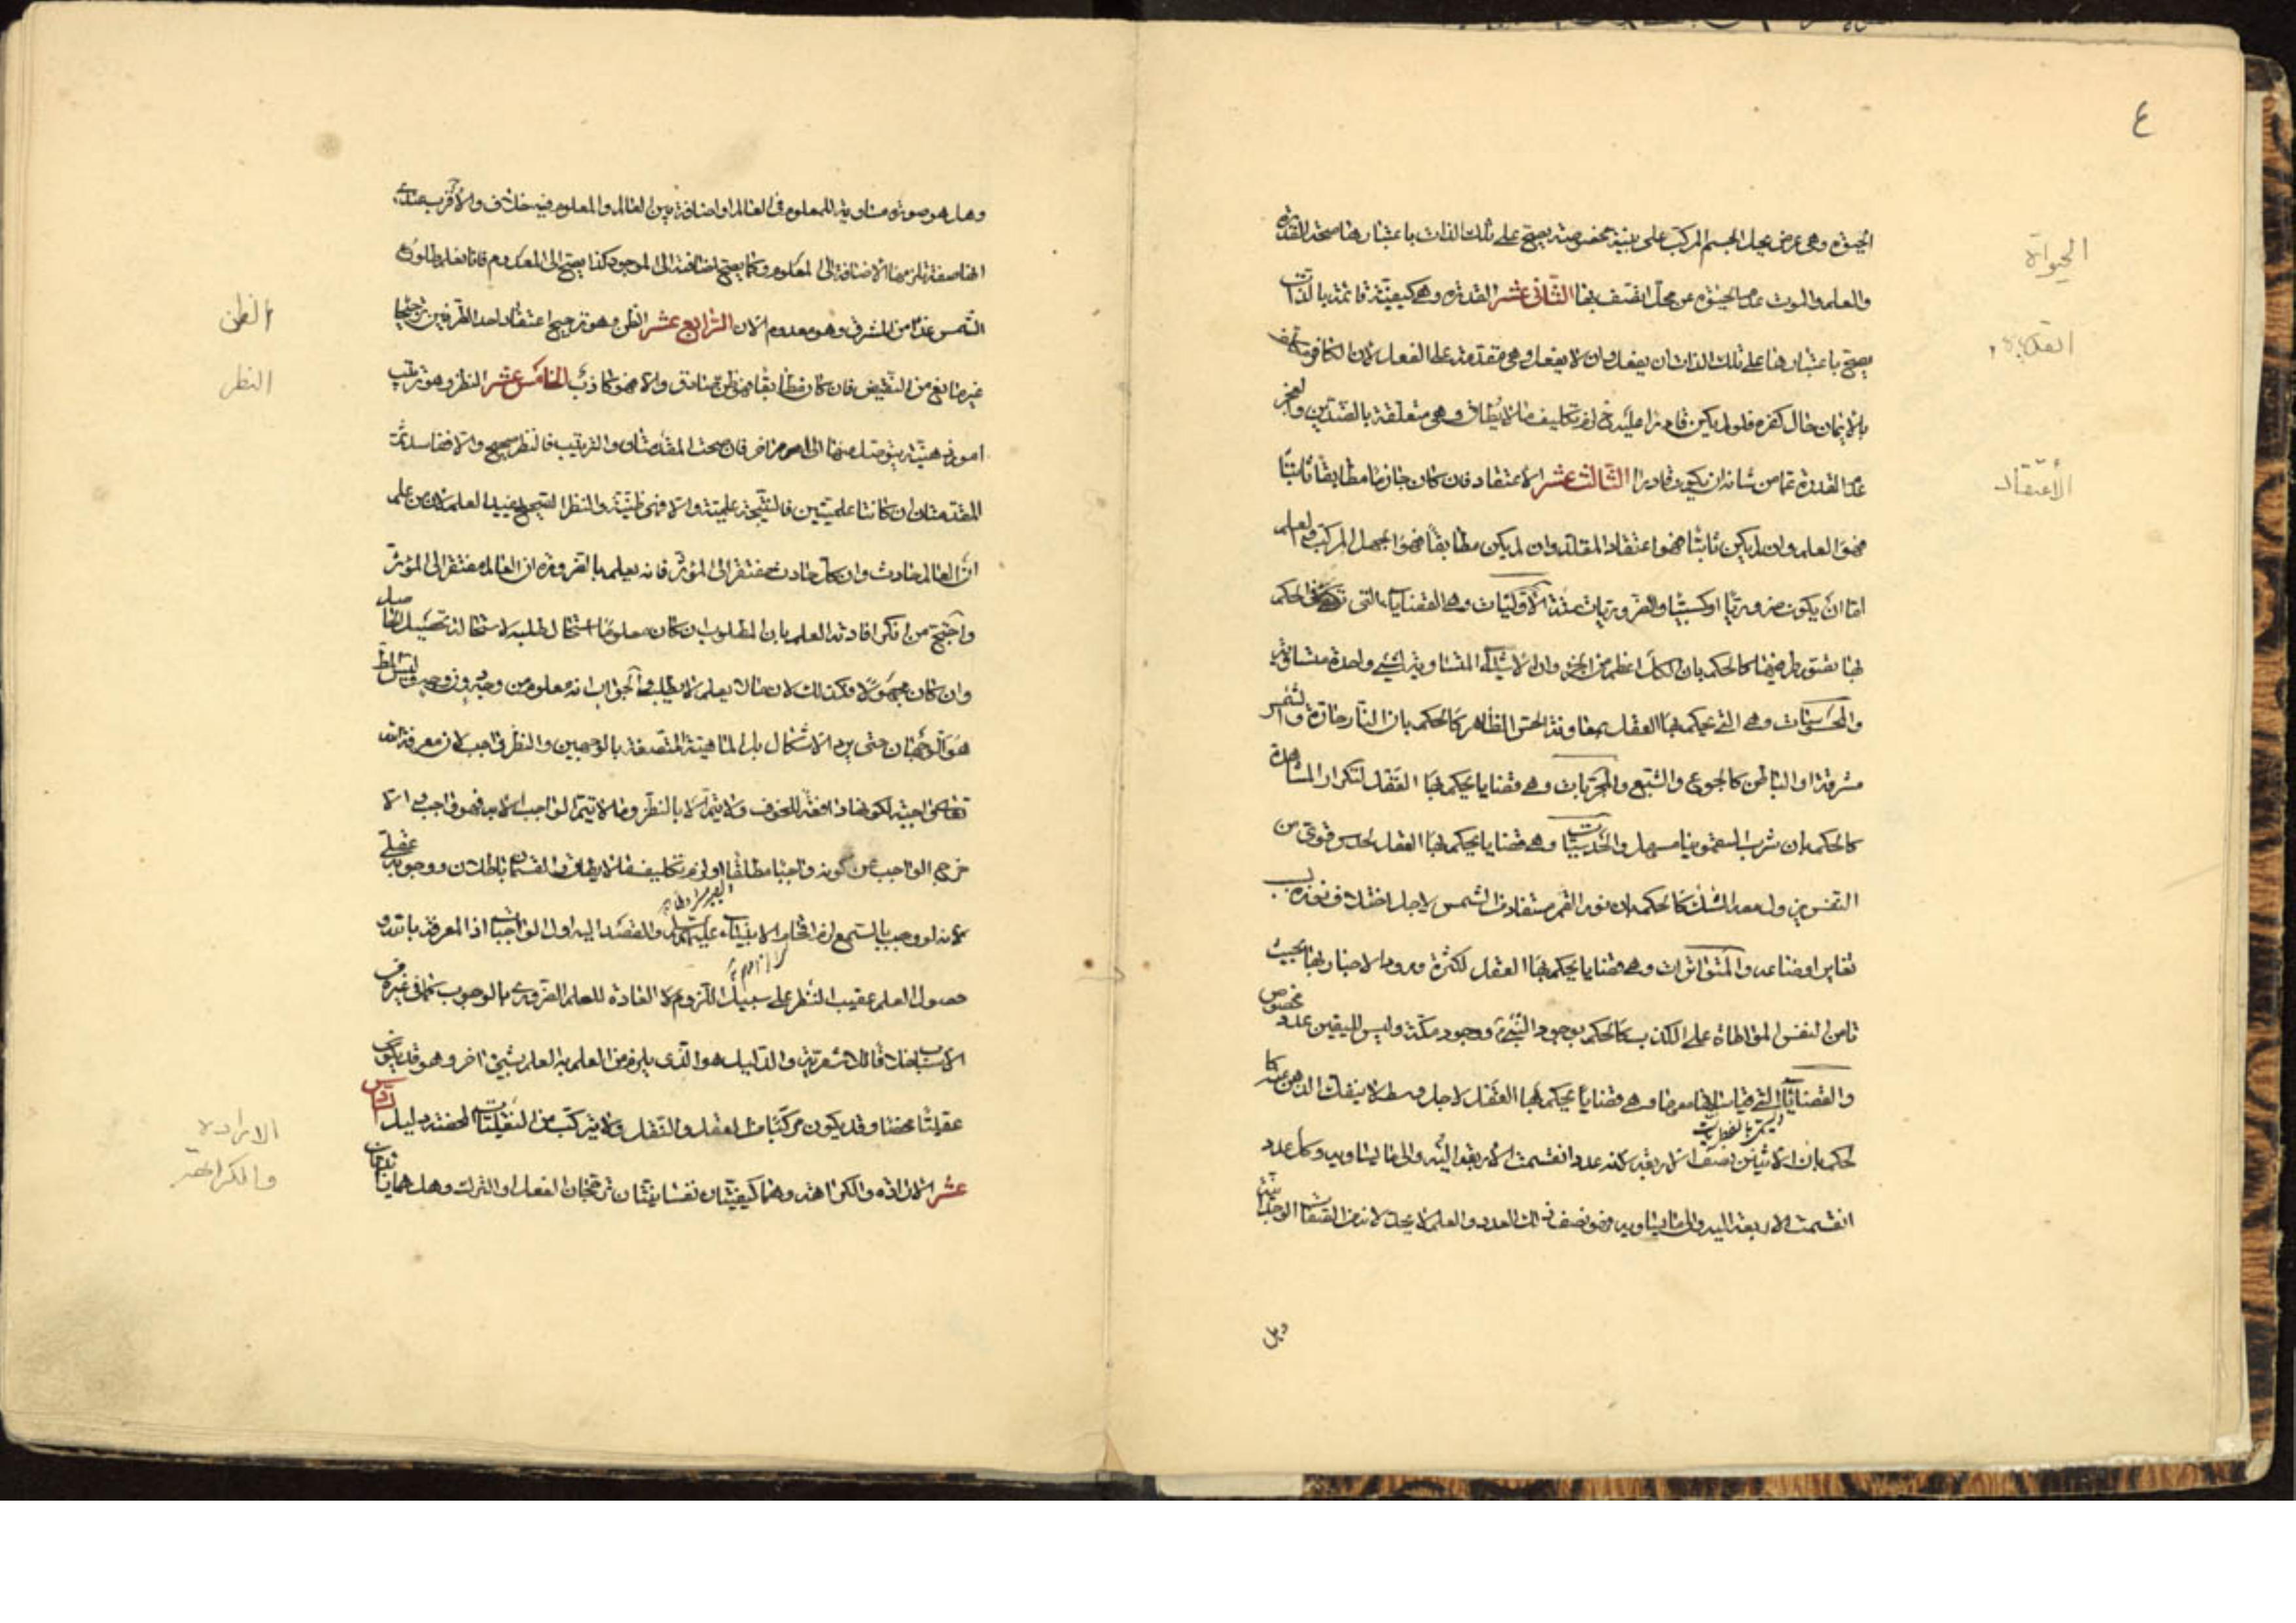 ٤
الحيوة وهي عرض يحل الجسم المركب على بنية مخصوصة يصح على تلك الذات باعتبارها صحة القدرة
والعلم والموت عدم الحيوة عن محل اتصف بها الثاني عشر القدرة وهي كيفية قائمة بالذات
يصح باعتبارها على تلك الذات ان يفعل وان لا يفعل وهي متقدمة على الفعل لان الكافر مكلف
بالايمان حال كفره فلو لم يكن قادرا عليه لزم تكليف ما لا يطاق وهي متعلقة بالضدين والعجز
عدم القدرة عما من شانه ان يكون قادرا الثالث عشر الاعتقاد فان كان جازما مطابقا ثابتا
فهو العلم وان لم يكن ثابتا فهو اعتقاد المقلد وان لم يكن مطابقا فهو الجهل المركب والعلم
اما ان يكون ضروريا او كسبيا والضروريات ستة الاوليات وهي القضايا التي في الحكم
بها تصور طرفيها كالحكم بان الكل اعظم من الجزء وان الاشياء المتساوية لشيء واحد متساوية
والمحسوسات وهي التي يحكم بها العقل بمعاونة الحس الظاهر كالحكم بان النار حارة والشمس
مشرقة او الباطن كالجوع والشبع والمجربات وهي قضايا يحكم بها العقل لتكرار المشاهدة
كالحكم بان شرب السقمونيا مسهل والحدسيات وهي قضايا يحكم بها العقل لحدس قوي من
النفس يزول معه الشك كالحكم بان نور القمر مستفاد من الشمس لاجل اختلاف نوره بسبب
تغاير اوضاعه والمتواترات وهي قضايا يحكم بها العقل لكثرة ورود الاخبار بها بحيث
تامن النفس المواطاة على الكذب كالحكم بوجود النبي ووجود مكة وليس لليقين عدد مخصوص
والقضايا التي قياساتها معها وهي قضايا يحكم بها العقل لاجل وسط لا ينفك الذهن عنه كا
يسمى بالفطريات
لحكم بان الاثنين نصف الاربعة لانه عدد انقسمت الاربعة اليه والى ما يساويه وكل عدد
انقسمت الاربعة اليه والى ما يساويه فهو نصف ذلك العدد والعلم لا يحد لانه من الصفات الوجدانية
وهل
الحيواة
القدرة
الأعتقاد
وهل هو صورة مساوية للمعلوم في العالم او اضافة بين العالم والمعلوم فيه خلاف والاقرب عندي
انها صفة تلزمها الاضافة الى المعلوم وكما يصح اضافته الى الموجود كذا يصح الى المعدوم فانا نعلم طلوع
الشمس غدا من المشرق وهو معدوم الان الرابع عشر الظن وهو ترجيح اعتقاد احد الطرفين ترجيحا
غير مانع من النقيض فان كان مطابقا فهو ظن صادق والا فهو كاذب الخامس عشر النظر وهو ترتيب
امور ذهنية يتوصل منها الى امر اخر فان صحت المقدمتان والترتيب فالنظر صحيح والا ففاسد ثم
المقدمتان ان كانتا علميتين فالنتيجة علمية والا فهي ظنية والنظر الصحيح يفيد العلم لان من علم
ان العالم حادث وان كل حادث مفتقر الى المؤثر فانه يعلم بالضرورة ان العالم مفتقر الى المؤثر
واحتج من انكر افادته العلم بان المطلوب ان كان معلوما استحال طلبه لاستحالة تحصيل الحاصل
وان كان مجهولا فكذلك لان ما لا يعلم لا يطلب والجواب انه معلوم من وجه دون وجه وليس المط
هو الوجهان حتى يرد الاشكال بل الماهية المتصفة بالوجهين والنظر واجب لان معرفة الله
تعالى واجبة لكونها دافعة للخوف ولا يتم الا بالنظر وما لا يتم الواجب الا به فهو واجب والا
خرج الواجب عن كونه واجبا مطلقا او لزم تكليف ما لا يطاق والقسمان باطلان ووجوبه عقلي
لانه لو وجب بالسمع لزم افحام الانبياء عليهم والقصد اليه اول الواجبات اذ المعرفة بالله
حصول العلم عقيب النظر على سبيل اللزوم لا العادة للعلم الضروري بالوجوب كما في غيره من
الاسباب خلافا للاشعرية والدليل هو الذي يلزم من العلم به العلم بشيء اخر وهو قد يكون
عقليا محضا وقد يكون مركبا من العقل والنقل ولا يتركب من النقليات المحضة دليل السادس
عشر الارادة والكراهة وهما كيفيتان نفسانيتان ترجحان الفعل او الترك وهل هما زائدتان
الظن
النظر
الارادة
والكراهة